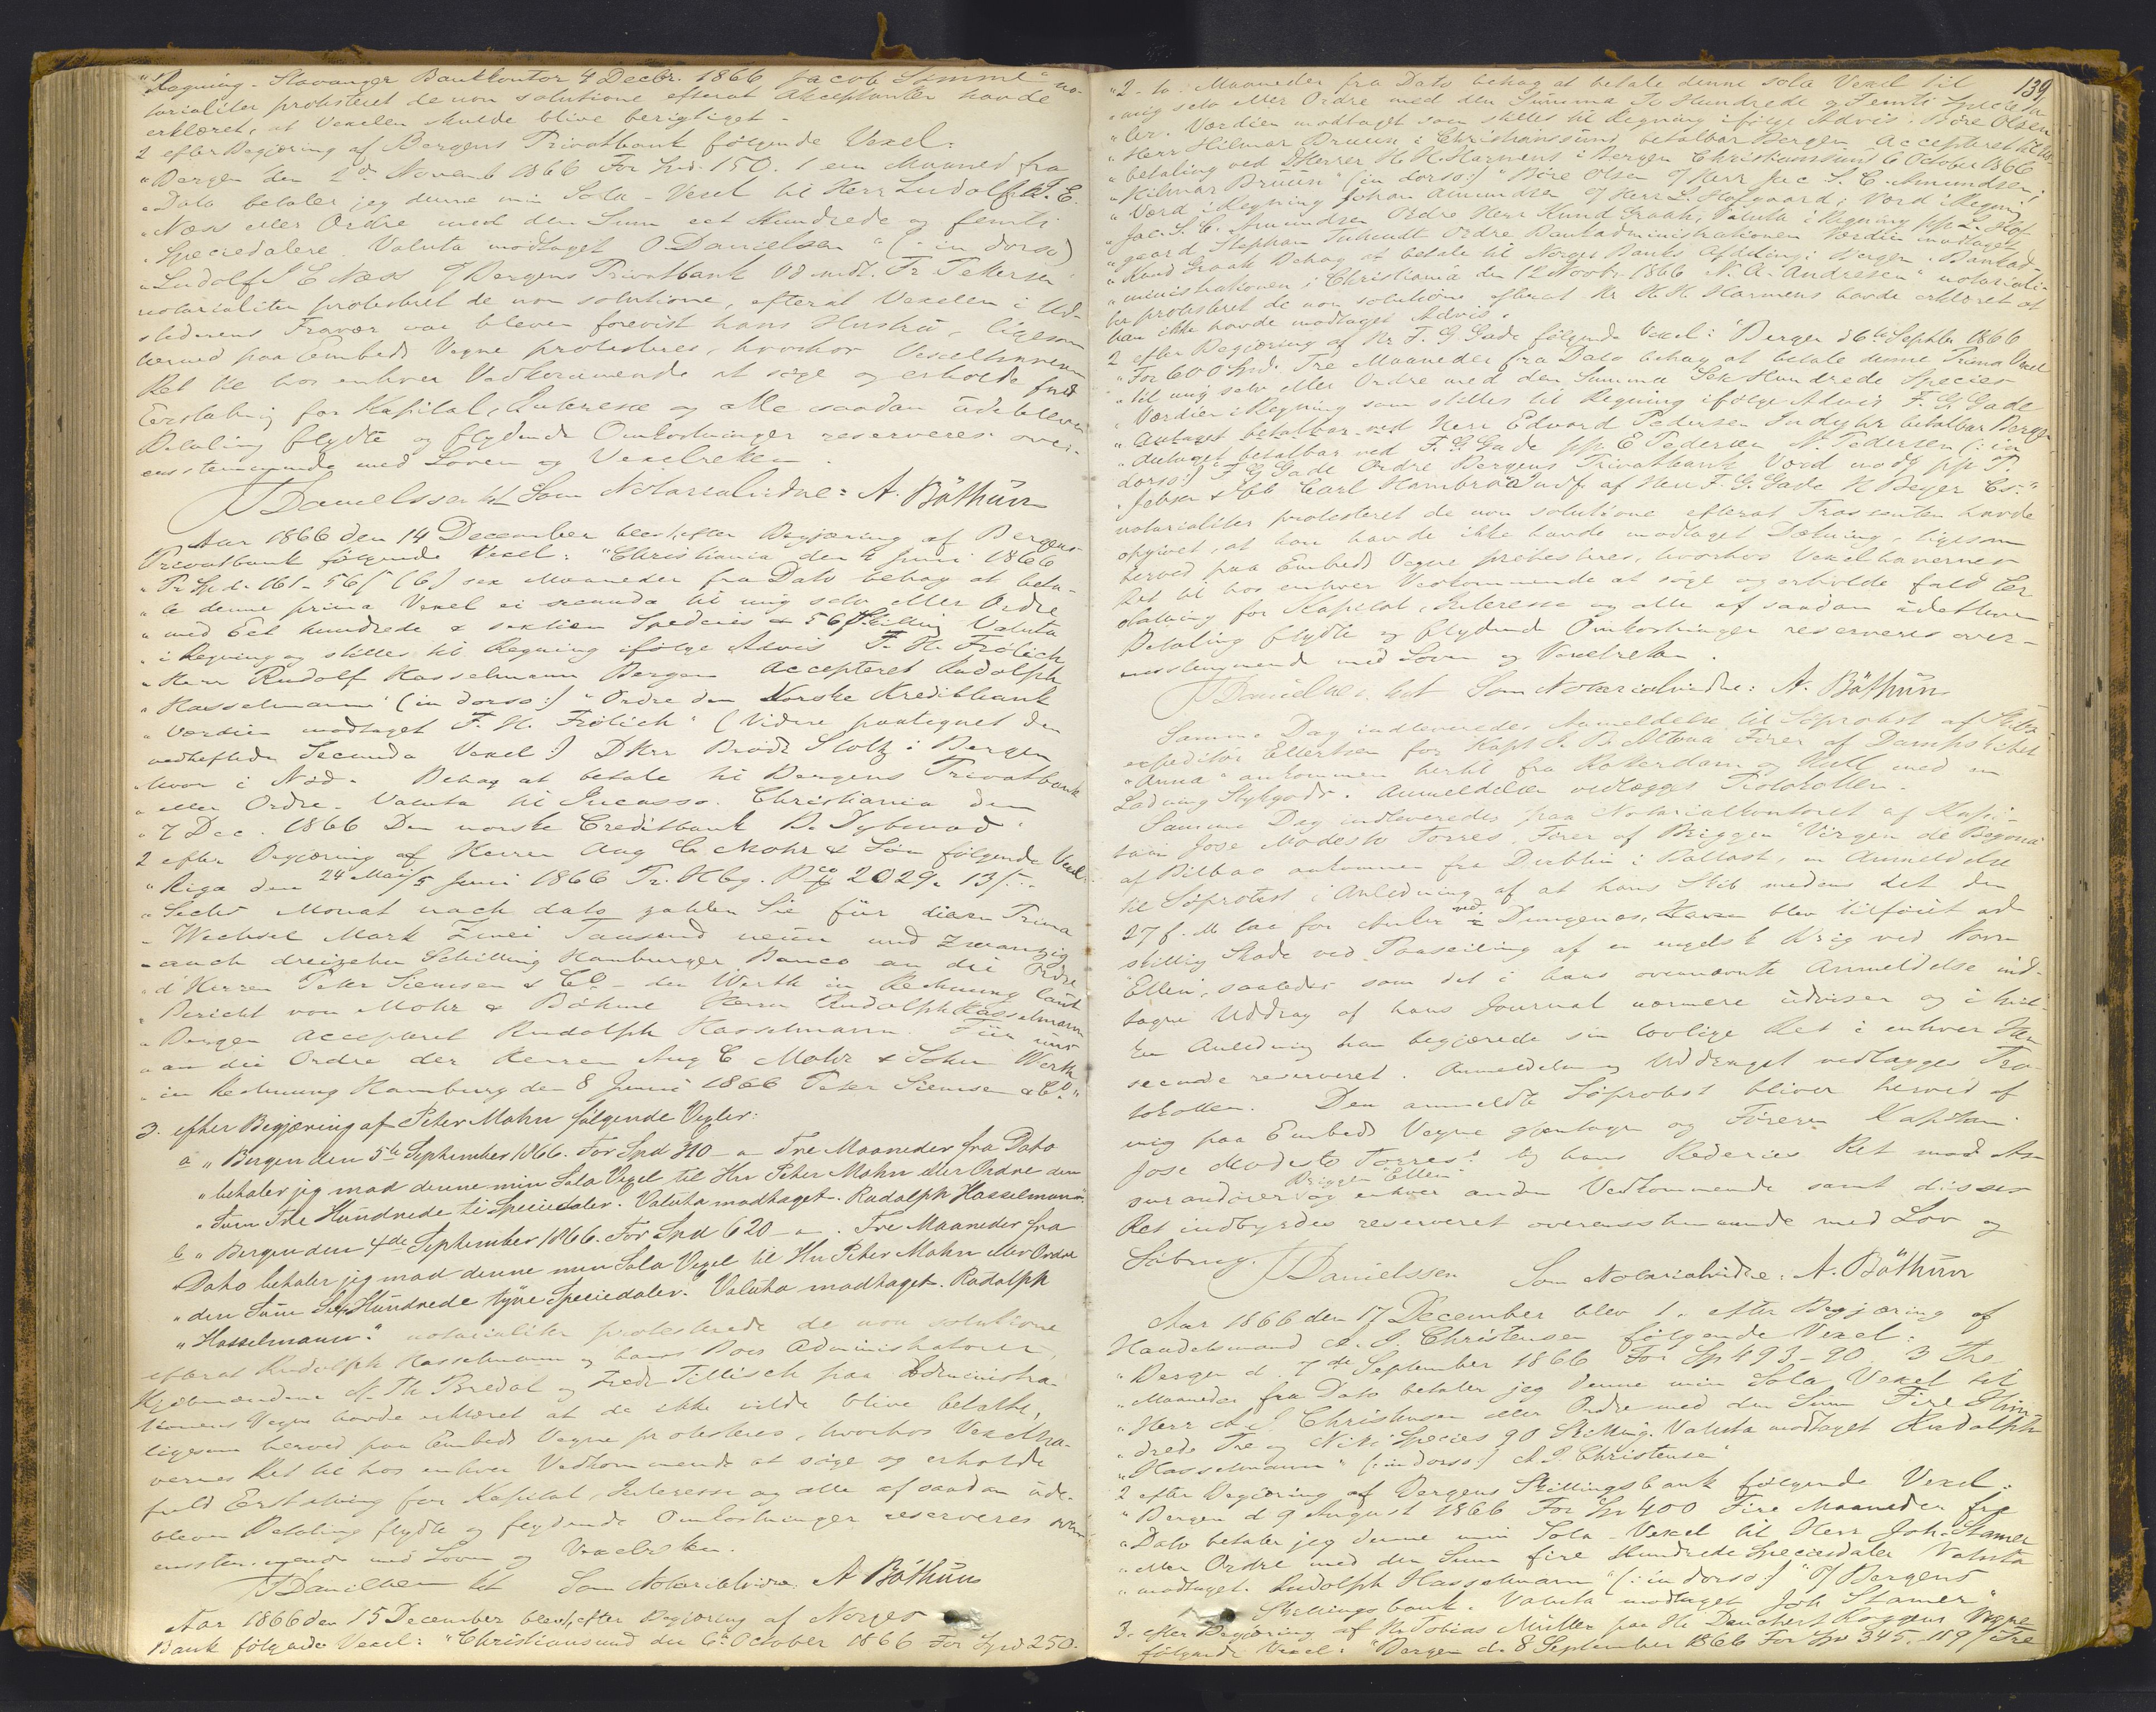 "Regning. Stavanger Bankkontor 4 Decbr. 1866 Jacob Sømme" no-
tarialiter protesteret de non solutione efterat Akceptanten havde
erklæret, at Vexelen skulde blive berigtiget.
2 efter Begjæring af Bergens Privatbank følgende Vexel:
"Bergen den 2de Novemb 1866 For Spd. 150. 1 een Maaned fra
"Dato betaler jeg denne min Sola-Vexel til Herr Ludolf J. E.
"Næss eller Ordre med den Sum eet Hundrede og femti
"Speciedalere. Valuta modtaget O. Danielsen" (: in dorso)
"Ludolf J E Næss" Bergens Privatbank Fr Petersen"
notarialiter protesteret de non solutione, efterat Vexelen i Ud-
stederens Fravær var bleven forevist hans Hustru, ligesom
herved paa Embeds Vegne protesteres, hvorhos Vexelhaverens
Ret til hos enhver Vedkommende at søge og erholde fuld
Erstatning for Kapital, Interesse og alle saadan udebleven
Betaling flydte og flydende Omkostninger reserveres over-
ensstemmende med Loven og Vexelretten.
J Danielssen kst Som Notarialvidne: A. Bøthun
Aar 1866 den 14 December blev 1, efter Begjæring af Bergens
Privatbank følgende Vexel: "Christiania den 4 Juni 1866
"Pr Sp.d. 161-56/ (6) sex Maaneder fra Dato behag at beta-
"le denne prima Vexel ei secunda til mig selv eller Ordre
"med Eet hundrede & sextien Species & 56 Skilling Valuta
"i Regning og stilles til Regning ifølge Advis F. H. Frölich
"Herr Rudolf Hasselmann Bergen Accepteret Rudolph
"Hasselmann" (in dorso:) "Ordre den Norske Kreditbank
"Værdien modtaget F. H. Frölich" (Videre paategnet den
vedheftede Secunda Vexel:) DHrr Brødr Stoltz i Bergen
hvor i Nød. Behag at betale til Bergens Privatbank
"eller Ordre. Valuta til Incasso. Christiania den
"7 Dec. 1866 Den norske Creditbank
2 efter Begjæring af Herrer Aug C. Mohr & Søn følgende Vexel:
"Riga den 24 Mai/5 Juni 1866 Pr. Hbg. Bco 2029. 13/...
"Sechs Monat nach dato zahlen Sie für diesen Prima
"Wechsel Mark Zwei Tausend neun und Zwanzig
"auch dreizehn Schilling Hamburger Banco an die Ordre
"d Herren Peter Siemsen & Co - den Werth in Rechnung laut
"Bericht von Mohr & Böhme Herrn Rudolph Hasselmann
"Bergen Accepteret Rudolph Hasselmann. Für uns
"an die Ordre der Herren Aug C Mohr & Sohn Werth
"in Rechnung Hamburg den 8 Juni 1866 Peter Siemsen & Co."
3. efter Begjæring af Peter Mohn følgende Vexler:
a "Bergen den 5te September 1866. For Spd 310 - Tre Maaneder fra Dato
"betaler jeg mod denne min Sola Vexel til Hr. Peter Mohn eller Ordre den
"Sum Tre Hundrede ti Speciedaler. Valuta modtaget. Rudolph Hasselmann"
b "Bergen den 4de September 1866. For Spd 620 - . Tre Maaneder fra
"Dato betaler jeg mod denne min Sola Vexel til Hr Peter Mohn eller Ordre
"den Sum Sex Hundrede tyve Speciedaler. Valuta modtaget. Rudolph
"Hasselmann." notarialiter protesterede de non solutione
efterat Rudolph Hasselmann og hans Boes Administratorer,
Kjøbmændene N. Th Bredal og Fredr Tillisch paa Administra-
tionens Vegne havde erklæret at de ikke vilde blive betalte,
ligesom herved paa Embeds Vegne protesteres, hvorhos Vexelha-
vernes Ret til hos enhver Vedkommende at søge og erholde
fuld Erstatning for Kapital, Interesse og alle af saadan ude-
bleven Betaling flydte og flydende Omkostninger reserveres over-
ensstemmende med Loven og Vexelretten.
J Danielssen kst Som Notarialvidne A Bøthun
Aar 1866 den 15 December blev 1, efter Begjæring af Norges
Bank følgende Vexel: "Christiansund den 6te October 1866 For Spd 250.
139
"2-to Maaneder fra Dato behag at betale denne sola Vexel til
"mig selv eller Ordre med den Summa To Hundrede og Femti Specieda-
"ler. Værdien modtaget som stilles til Regning ifølge Advis. Børe Olsen
"Herr Hilmar Bruun i Christiansund betalbar Bergen Accepteret til Ud-
"betaling ved DHerrer H. H. Harmens i Bergen Christiansund 6 October 1866
"Hilmar Bruun" (in dorso:) "Børe Olsen Herr Jac S. C. Amundsen,
"Værd i Regning Johan Amundsen Herr L. Hofgaard; Værd i Regning
"Jac. S. C. Amundsen Ordre Herr Knud Graah, Valuta i Regning pp L. Hof-
"gaard Stephan Ordre Bankadministrationen Værdien modtaget
"Knud Graah Behag at betale til Norges Banks Afdeling i Bergen. Bankad-
"ministrationen i Christiania den 12 Novbr 1866 N. A. Andresen" notariali-
ter protesteret de non solutione efterat Hr H. H. Harmens havde erklæret at
han ikke havde modtaget Advis.
2 efter Begjæring af Hr F. G. Gade følgende Vexel: "Bergen d 6te Septbr 1866
"For 600 Spd. Tre Maaneder fra Dato behag at betale denne Prima Vexel
"til mig selv eller Ordre med den Summa Sex Hundrede Species
"Værdien i Regning som stilles til Regning ifølge Advis F. G. Gade
"Antaget betalbar ved Herr Edvard Pedersen betalbar Bergen
"Antaget betalbar ved F. G. Gade pp. E Pedersen N. Pedersen (: in
dorso:) "F G Gade Ordre Bergens Privatbank Værd modt pp P.
"Jebsen & Co Carl Hambro af Herr F. G. Gade H Beyer Cs."
notarialiter protesteret de non solutione efterat Trassenten havde
opgivet, at han havde ikke havde modtaget Dækning, ligesom
herved paa Embeds Vegne protesteres, hvorhos Vexelhavernes
Ret til hos enhver Vedkommende at søge og erholde fuld Er-
statning for Kapital, Interesse og alle af saadan udebleven
Betaling flydte og flydende Omkostninger reserveres over-
ensstemmende med Loven og Vexelretten.
J Danielssen kst Som Notarialvidne: A. Bøthun
Samme Dag indleveredes Anmeldelse til Søprotest af Skibs-
expeditør Ellertsen for Kapt Fører af Dampskibet
"Anna" ankommen hertil fra Rotterdam og Hull med en
Ladning Stykgods. Anmeldelsen vedlægges Protokollen.
Samme Dag indleveredes paa Notarialkontoret af Kapi-
tain Jose Modesto Torres, Fører af Briggen "Virgen de Begona"
af Bilbao ankommen fra Dublin i Ballast, en Anmeldelse
til Søprotest i Anledning af at hans Skib medens det den
27 f. M laa for Anker ved Dungenes, blev tilføiet ad-
skillig Skade ved Paaseiling af en engelsk Brig ved Navn
"Ellen", saaledes som det i hans ovennævnte Anmeldelse ind-
tagne Uddrag af hans Journal nærmere udviser og i hvil-
ken Anledning han begjærede sin lovlige Ret i enhver Hen-
seende reserveret. Anmeldelsen og Uddraget vedlægges Pro-
tokollen. Den anmeldte Søprotest bliver herved af
mig paa Embeds Vegne gjentagen og Føreren Kaptain
Jose Modesto Torres's og hans Rederies Ret mod As-
surandører, Briggen "Ellen" og enhver anden Vedkommende samt disses
Ret indbyrdes reserveret overensstemmende med Lov og
Søbrug. J Danielssen Som Notarialvidne: A. Bøthun
Aar 1866 den 17 December blev 1. efter Begjæring af
Handelsmand A. J. Christensen følgende Vexel:
"Bergen d. 7de September 1866 For Sp 493-90. 3 Tre
"Maaneder fra Dato betaler jeg denne min Sola Vexel til
"Herr A J Christensen eller Ordre med den Sum Fire Hun-
"drede Tre og Niti Species 90 Skilling. Valuta modtaget Rudolph
"Hasselmann" (: in dorso:) A. J. Christensen"
2 efter Begjæring af Bergens Skillingsbank følgende Vexel:
"Bergen d 9 August 1866 For Sp 400 Fire Maaneder fra
"Dato betaler jeg denne min Sola-Vexel til Herr Joh. Stamer
"eller Ordre med den Sum fire Hundrede Speciesdaler Valuta
"modtaget. Rudolph Hasselmann" (: in dorso:) "Bergens
"Skillingsbank. Valuta modtaget Joh Stamer"
3. efter Begjæring af Hr Tobias Müller paa Hr Danchert Koggens Vegne
følgende Vexel: "Bergen d. 8 September 1866 For Sp 345. 119/ Tre